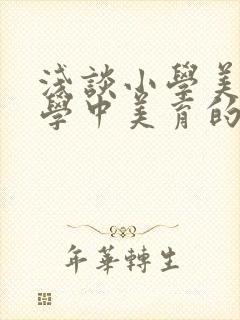 淺談小學美
學中美育的
年華轉生